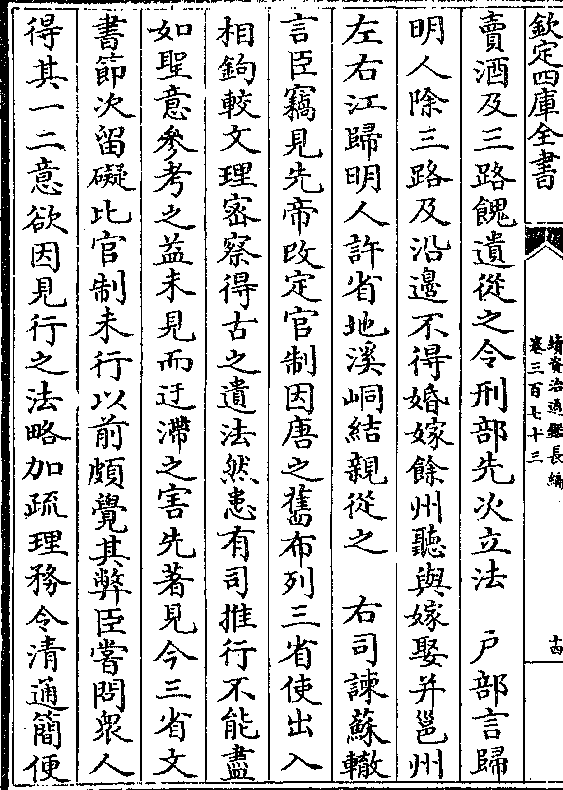 欽定四庫全書
續資治通鑑長編
卷三百七十三
十四
賣酒及三路餽遺從之令刑部先次立法　户部言歸
明人除三路及沿邊不得婚嫁餘州聽與嫁娶并邕州
左右江歸明人許省地溪峒結親從之　右司諫蘇轍
言臣竊見先帝改定官制因唐之舊布列三省使出入
相鉤較文理密察得古之遺法然患有司推行不能盡
如聖意參考之益未見而迂滯之害先著見今三省文
書節次留礙比官制未行以前頗覺其弊臣嘗問衆人
得其一二意欲因見行之法略加疏理務令清通簡便